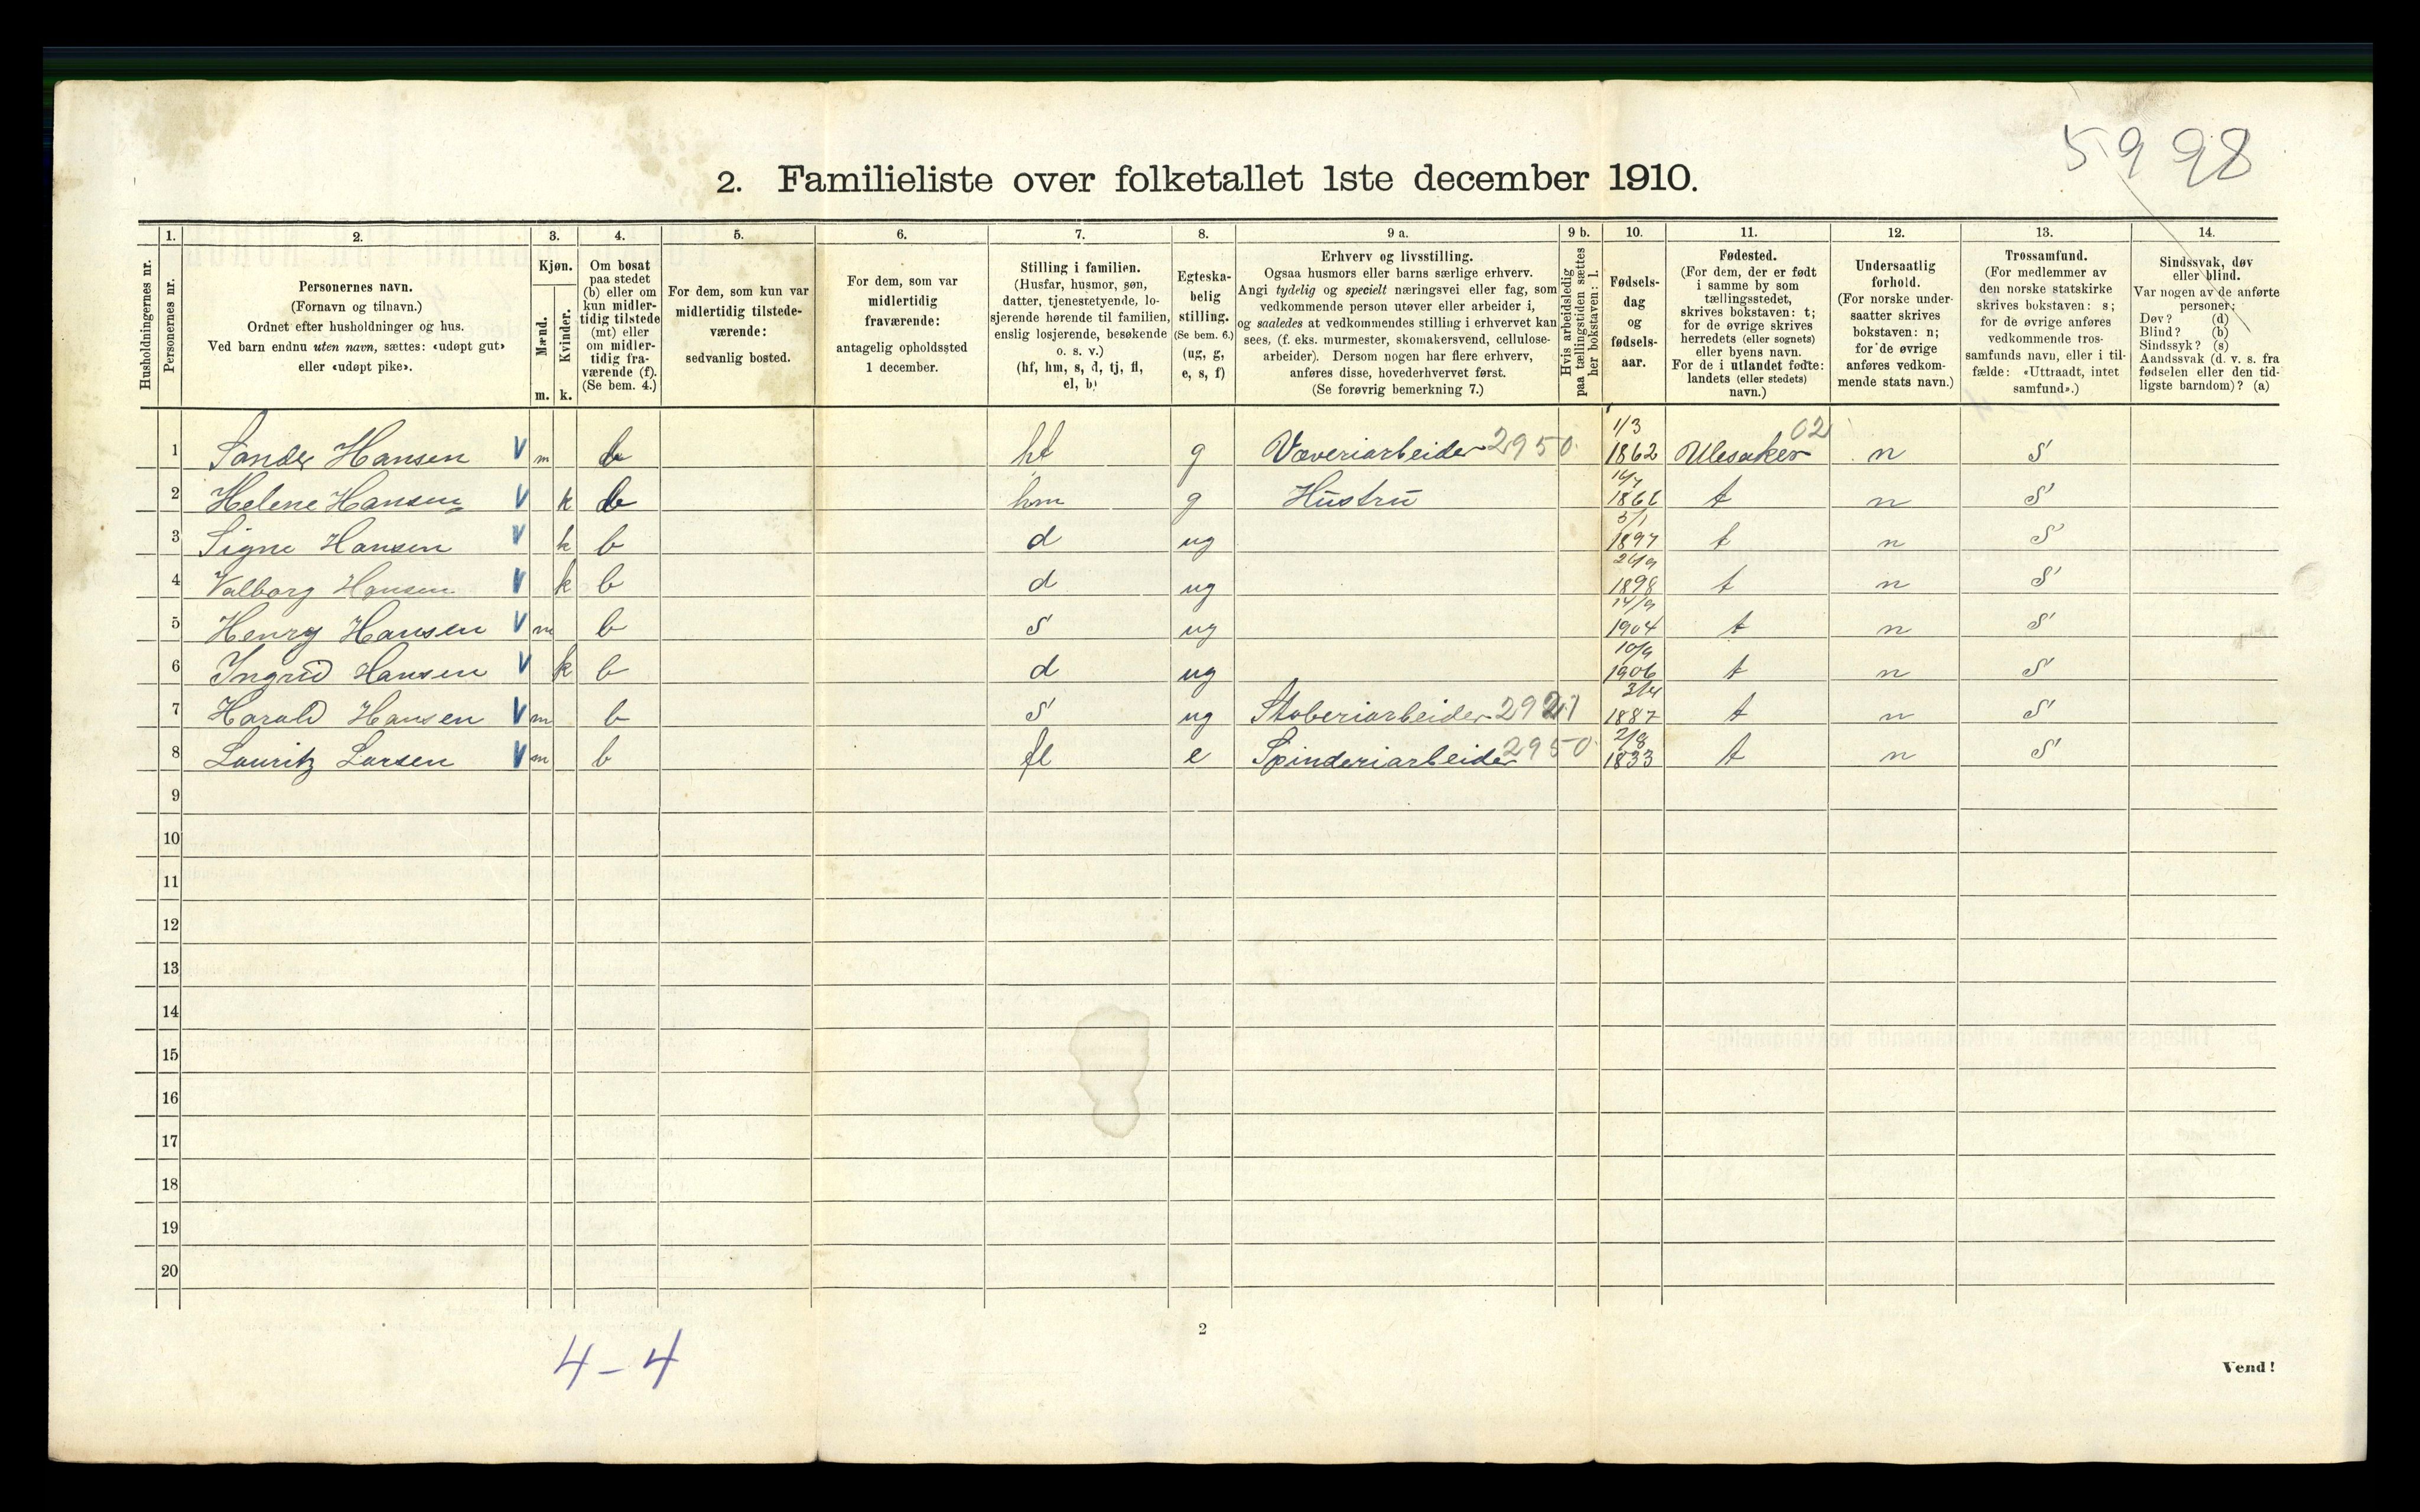 5998
2. Familieliste over folketallet 1ste december 1910.
1. 2. 3. 4. 5. 6. 7. 8. 9 a. 9 b. 10. 11. 12. 13. 14.
Husholdningernes nr.
Personernes nr.
Personernes navn.
(Fornavn og tilnavn.)
Ordnet efter husholdninger og hus.
Ved barn endnu uten navn, sættes: «udøpt gut»
eller «udøpt pike».
Kjøn.
Mænd.
Kvinder.
m. k.
Om bosat
paa stedet
(b) eller om
kun midler-
tidig tilstede
(mt) eller
om midler-
tidig fra-
værende (f).
(Se bem. 4.)
For dem, som kun var
midlertidig tilstede-
værende:
sedvanlig bosted.
For dem, som var
midlertidig
fraværende:
antagelig opholdssted
1 december.
Stilling i familien.
(Husfar, husmor, søn,
datter, tjenestetyende, lo-
sjerende hørende til familien,
enslig losjerende, besøkende
o. s. v.)
(hf, hm, s, d, tj, fl,
el, b)
Egteska-
belig
stilling.
(Se bem. 6.)
(ug, g,
e, s, f)
Erhverv og livsstilling.
Ogsaa husmors eller barns særlige erhverv.
Angi tydelig og specielt næringsvei eller fag, som
vedkommende person utøver eller arbeider i,
og saaledes at vedkommendes stilling i erhvervet kan
sees, (f. eks. murmester, skomakersvend, cellulose-
arbeider). Dersom nogen har flere erhverv,
anføres disse, hovederhvervet først.
(Se forøvrig bemerkning 7.)
Hvis arbeidsledig
paa tællingstiden sættes
her bokstaven: l.
Fødsels-
dag
og
fødsels-
aar.
Fødested.
(For dem, der er født
i samme by som
tællingsstedet,
skrives bokstaven: t;
for de øvrige skrives
herredets (eller sognets)
eller byens navn.
For de i utlandet fødte:
landets (eller stedets)
navn.)
Undersaatlig
forhold.
(For norske under-
saatter skrives
bokstaven: n;
for de øvrige
anføres vedkom-
mende stats navn.)
Trossamfund.
(For medlemmer av
den norske statskirke
skrives bokstaven: s;
for de øvrige anføres
vedkommende tros-
samfunds navn, eller i til-
fælde: «Uttraadt, intet
samfund».)
Sindssvak, døv
eller blind.
Var nogen av de anførte
personer:
Døv? (d)
Blind? (b)
Sindssyk? (s)
Aandssvak (d. v. s. fra
fødselen eller den tid-
ligste barndom)? (a)
1 Sander Hansen V m b hf g Væveriarbeider 2950 1/3 1862 Ulesaker 02 n S
2 Helene Hansen V k b hm g Hustru t n S
3 Signe Hansen V k b d ug 5/1 1897 t n S
4 Valborg Hansen V k b d ug 1898 t n S
5 Henry Hansen V m b s ug 14/9 1904 t n S
6 Ingrid Hansen V k b d ug 10/9 1906 t n S
7 Harald Hansen V m b s ug Støberiarbeider 2921 3/4 1887 t n S
8 Lauritz Larsen V m b fl e Spinderiarbeider 2950 2/8 1833 t n S
9
10
11
12
13
14
15
16
17
18
19
20
2
4-4
Vend!